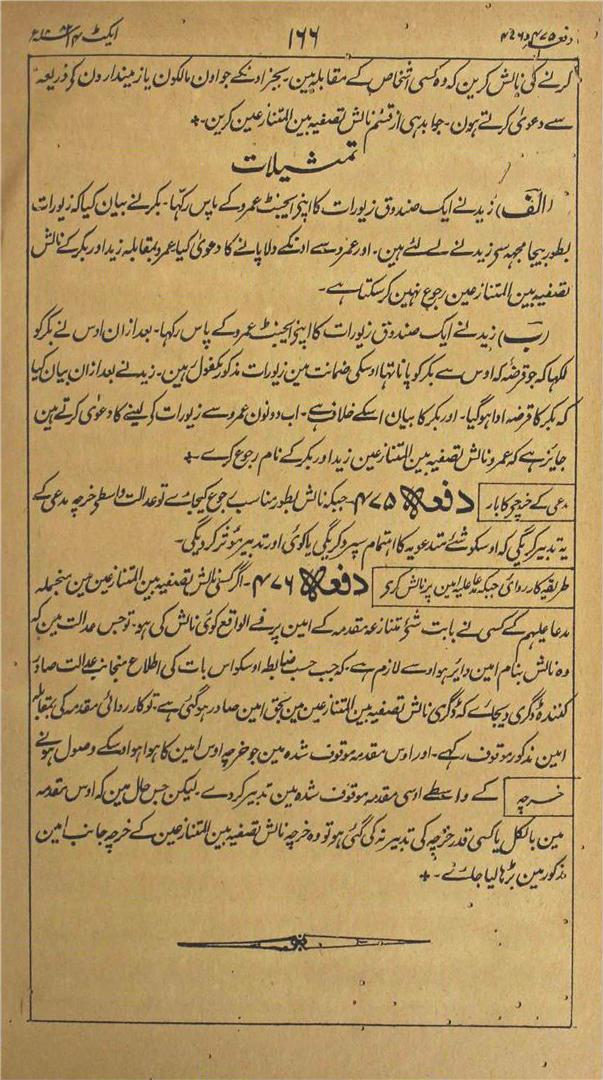 دفعہ ۴۷۵ و ۴۷۶
۱۶۶
ایکٹ ۱۴ ۱۸۸۲ء
کرنے کی نالش کرین کہ وہ کسی اشخاص کے مقابلہ مین ۔ بجز اونکے جو اون مالکون یا زمیندارون کو ذریعہ
سے دعویٰ کرتے ہون ۔ جوابدہی از قسم نالش تصفیہ بین المتنازعین کرین ۔ +
تمثیلات
(الف) زید نے ایک صندوق زیورات کا اپنی ایجنٹ عمرو کے پاس رکھا ۔ بکر نے بیان کیا کہ زیورات
بطور بیجا مجھ سے زید نے لے لئے ہین ۔ اور عمرو سے اونکے دلا پانے کا دعویٰ کیا عمرو بمقابلہ زید اور بکر کے نالش
تصفیہ بین المتنازعین رجوع نہین کر سکتا ہے ۔
(ب) زید نے ایک صندوق زیورات کا اپنی ایجنٹ عمرو کے پاس رکھا ۔ بعد ازان اوس نے بکر کو
لکھا کہ جو قرضہ کہ اوس سے بکر کو پانا تھا اوسکی ضمانت مین زیورات مذکور مکفول رہین ۔ زید نے بعد ازان بیان کیا
کہ بکر کا قرضہ ادا ہو گیا ۔ اور بکر کا بیان اسکے خلاف ہے ۔ اب دونون عمرو سے زیورات کے لینے کا دعویٰ کرتے ہین
جایز ہے کہ عمرو نالش تصفیہ بین المتنازعین زید اور بکر کے نام رجوع کرے ۔ +
مدعی کے خرچہ کا بار
دفعہ ۴۷۵ ۔ جبکہ نالش بطور مناسب رجوع کیجائے تو عدالت واسطے خرچہ مدعی کے
یہ تدبیر کریگی کہ اوسکو شئے متدعویہ کا اہتمام سپرد کریگی یا کوئی اور تدبیر موثر کردیگی ۔
طریقہ کارروائی جبکہ مدعا علیہ امین پر نالش کرے
دفعہ ۴۷۶ ۔ اگر کسی نالش تصفیہ بین المتنازعین مین منجملہ
مدعا علیہم کے کسی نے بابت شئے متنازعہ مقدمہ کے امین پر فے الواقع کوئی نالش کی ہو ۔ تو جس عدالت مین کہ
وہ نالش بنام امین دایر ہو اوسے لازم ہے ۔ کہ جب حسب ضابطہ اوسکو اس بات کی اطلاع منجانب عدالت صادر
کنندۂ ڈگری دیجائے کہ ڈگری نالش تصفیہ بین المتنازعین مین بحق امین صادر ہو گئی ہے ۔ تو کارروائی مقدمہ کی بمقابلہ
امین مذکور موقوف رکھے ۔ اور اوس مقدمہ موقوف شدہ مین جو خرچہ اوس امین کا ہوا ہو اوسکے وصول ہونے
خرچہ
کے واسطے اوسی مقدمہ موقوف شدہ مین تدبیر کردے ۔ لیکن جس حال مین کہ اوس مقدمہ
مین بالکل یا کسی قدر خرچہ کی تدبیر نہ کی گئی ہو تو وہ خرچہ نالش تصفیہ بین المتنازعین کے خرچہ جانب امین
مذکور مین بڑھا لیا جائے ۔ +